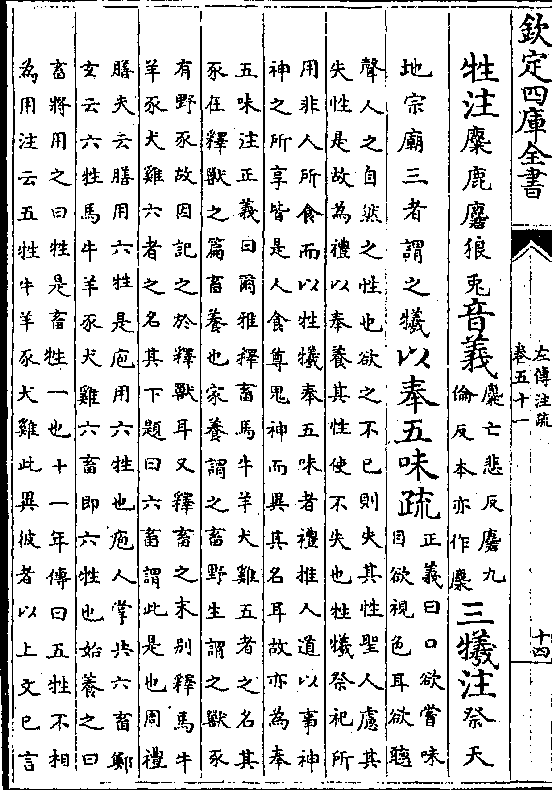 欽定四庫全書
左傳注疏
卷五十一
十四
牲注麋鹿麏狼兎音義麋亡悲反麏九倫反本亦作麇三犧注祭天
地宗廟三者謂之犧以奉五味疏正義曰口欲嘗味目欲視色耳欲聽
聲人之自然之性也欲之不已則失其性聖人慮其
失性是故為禮以奉養其性使不失也牲犧祭祀所
用非人所食而以牲犧奉五味者禮推人道以事神
神之所享皆是人食尊鬼神而異其名耳故亦為奉
五味注正義曰爾雅釋畜馬牛羊犬雞五者之名其
豕在釋獸之篇畜養也家養謂之畜野生謂之獸豕
有野豕故因記之於釋獸耳又釋畜之末别釋馬牛
羊豕犬雞六者之名其下題曰六畜謂此是也周禮
膳夫云膳用六牲是庖用六牲也庖人掌共六畜鄭
玄云六牲馬牛羊豕犬雞六畜即六牲也始養之曰
畜將用之曰牲是畜牲一也十一年傳曰五牲不相
為用注云五牲牛羊豕犬雞此異彼者以上文已言